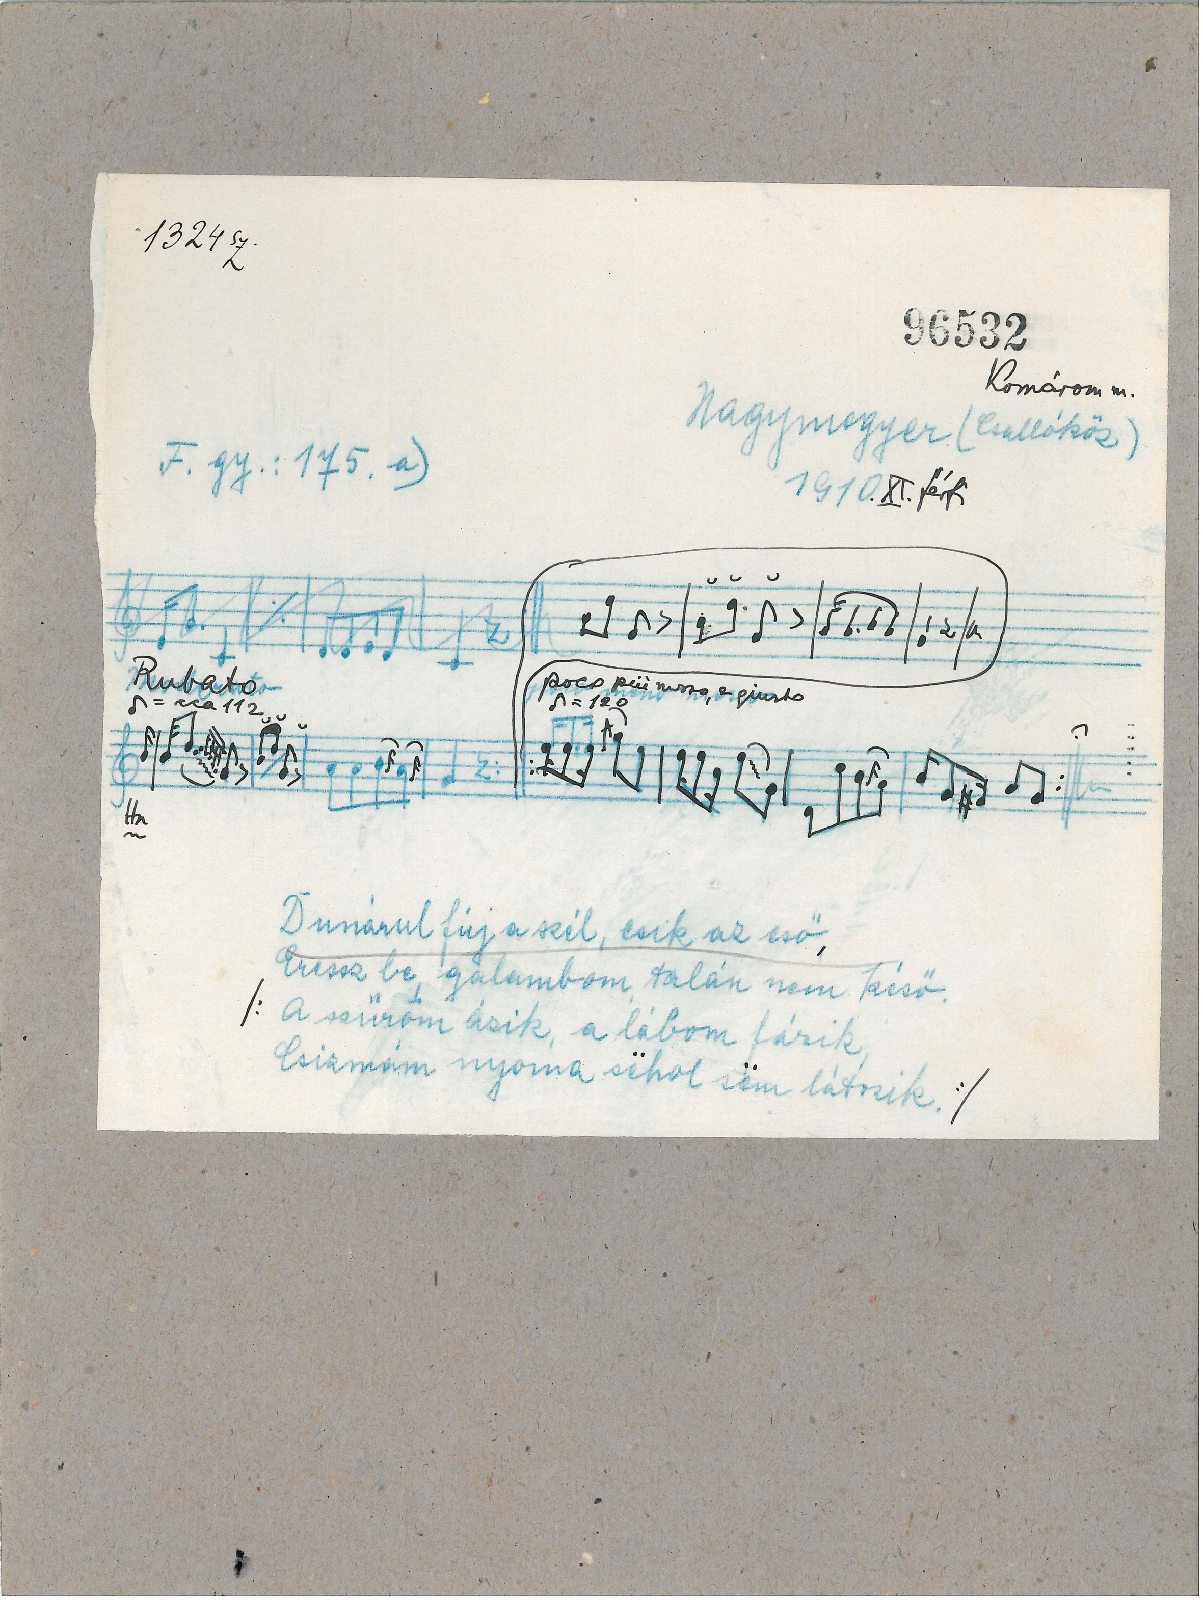 1324 sz.
96532
Komárom m.
Nagymegyer (Csallóköz)
F. gy.: 175. a)
1910. XI. férfi
Rubato
= cca 112
poco più mosso, e giusto
= 120
Dunárul fúj a szél, esik az eső,
Eressz be, galambom, talán nem késő.
/: A szűröm ázik, a lábom fázik,
Csizmám nyoma sëhol sëm látszik. :/